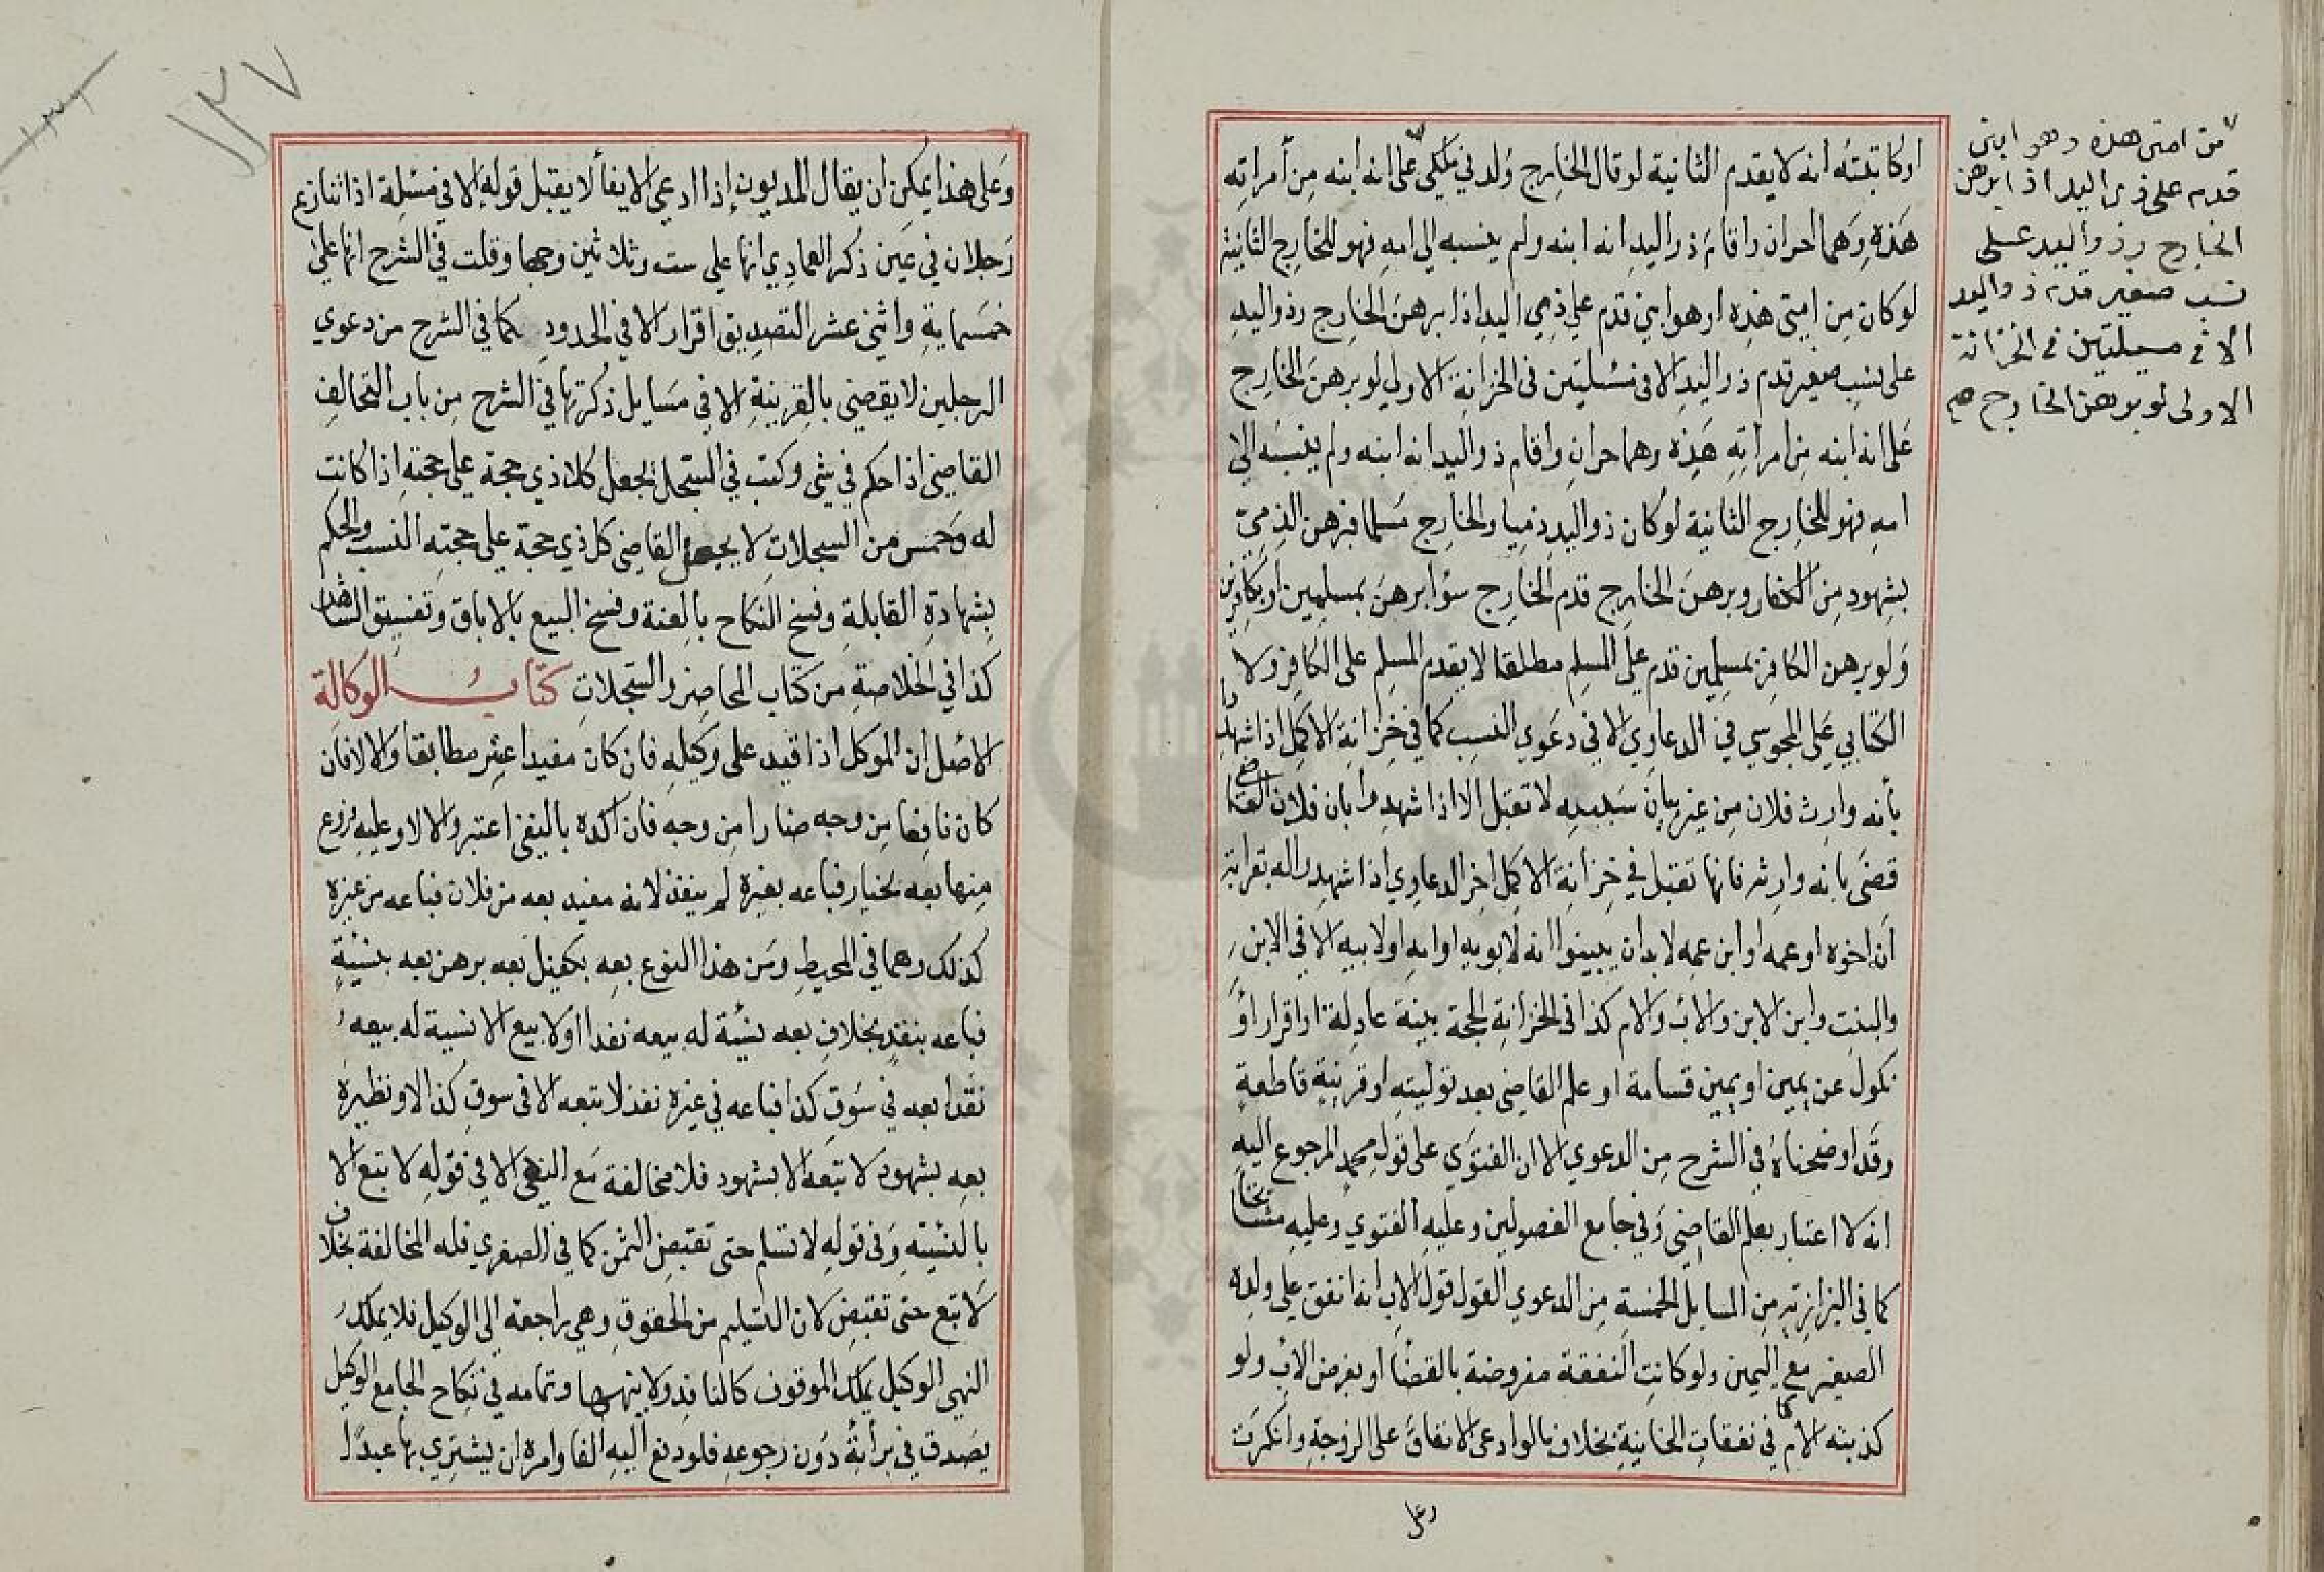 او كاتبته انه لا يقدم الثانية لو قال الخارج ولد في ملكي على انه ابنه من أمراته
هذه وهما احران واقام ذو اليد انه ابنه ولم ينسبه الى امه فهو للخارج الثانية
لو كان من امتى هذه او هو ابني قدم على ذي اليد اذا برهن الخارج وذو اليد
على نسب صغير قدم ذو اليد الا في مسئلتين فى الخزانة الاولي لو برهن الخارج
على انه ابنه من امراته هذه وهما حران واقام ذو اليد انه ابنه ولم ينسبه الى
امه فهو للخارج الثانية لو كان ذو اليد ذميا والخارج مسلما فبرهن الذمي
بشهود من الكفار وبرهن الخارج قدم الخارج سوٱ برهن بمسلمين او بكافرين
ولو برهن الكافر بمسلمين قدم على المسلم مطلقا لا يقدم المسلم على الكافر ولا
الكتابي على المجوسي في الدعاوي الا في دعوي النسب كما في خزانة الاكمل اذا شهدا
بأنه وارث فلان من غير بيان سببه لا تقبل الا اذا شهدوا بان فلان القاضي
قضى بانه وارثه فانها تقبل في خزانة الاكمل اخر الدعاوي اذا شهدوا له بقرابة
انه اخوه او عمه او ابن عمه لا بد ان يبينوا انه لابويه او امه او لابيه الا في الابن
والبنت وابن الابن والاب والام كذا فى الخزانة الحجة بينة عادلة او اقرار او
نكول عن يمين او يمين قسامة او علم القاضي بعد توليته او قرينة قاطعة
وقد اوضحناه في الشرح من الدعوي الا ان الفتوي على قول محمد المرجوع اليه
انه لا اعتبار بعلم القاضي وفي جامع الفصولين وعليه الفتوي وعليه مشايخنا
كما في البزازية من المسايل الخمسة من الدعوي القول قول الاب انه انفق على ولده
الصغير مع اليمين ولو كانت النفقة مفروضة بالقضا او بفرض الاب ولو
كذبته الام كما في نفقات الخانية بخلاف مالو ادعى الانفاق على الزوجة وانكرت
وعلى
من امتى هذه وهو ابنى
قدم على ذى اليد اذا برهن
الخارج وذو اليد على
نسب صغير قدم ذو اليد
الا فى مسيلتين فى الخزانة
الاولى لو برهن الخارج صح
١٣٧
وعلى هذا يمكن ان يقال المديون إذا ادعى الايفأ لا يقبل قوله الا في مسئلة اذا تنازع
رجلان في عين ذكر العمادي انها على ست وثلاثين وجها وقلت في الشرح انها على
خمسماية واثني عشر التصديق اقرار الا في الحدود كما في الشرح من دعوي
الرجلين لا يقضي بالقرينة الا في مسايل ذكرتها في الشرح من باب التحالف
القاضى اذا حكم في شى وكتب في السجل يجعل كلا ذي حجة على حجته اذا كانت
له وخمس من السجلات لا يجعل القاضى كل ذي حجة على حجته النسب والحكم
بشهادة القابلة وفسخ النكاح بالعنة وفسخ البيع بالاباق وتفسيق الشاهد
كذا في الخلاصة من كتاب المحاضر والسجلات كتاب الوكالة
الاصل ان الموكل اذا قيد على وكيله فان كان مفيدا اعتبر مطابقا والا لا فان
كان نافعا من وجه ضارا من وجه فان اكده بالنفي اعتبر والا لا وعليه فروع
منها بعه بخيار فباعه بغيره لم ينفذ لانه مفيد بعه من فلان فباعه من غيره
كذلك وهما في المحيط ومن هذا النوع بعه بكفيل بعه برهن بعه بنسيئة
فباعه بنقد بخلاف بعه نسئة له بيعه نقدا اولا بيع الا نسية له بيعه
نقدا بعه في سوق كذا فباعه في غيره نفذ لا تبعه الا فى سوق كذا لا ونظيره
بعه بشهود لا تبعه الا بشهود فلا مخالفة مع النهى الا في قوله لا تبع الا
بالنسئية وفى قوله لا تسلم حتى تقبض الثمن كما في الصغري فله المخالفة بخلاف
لا تبع حتى تقبض لان التسليم من الحقوق وهي راجعة الى الوكيل فلا يملك
النهي الوكيل يملك الموقوف كالنافد ولا ينهيها وتمامه في نكاح الجامع الوكيل
يصدق في برأئة دون رجوعه فلو دفع اليه الفا وامره ان يشتري بها عبدا